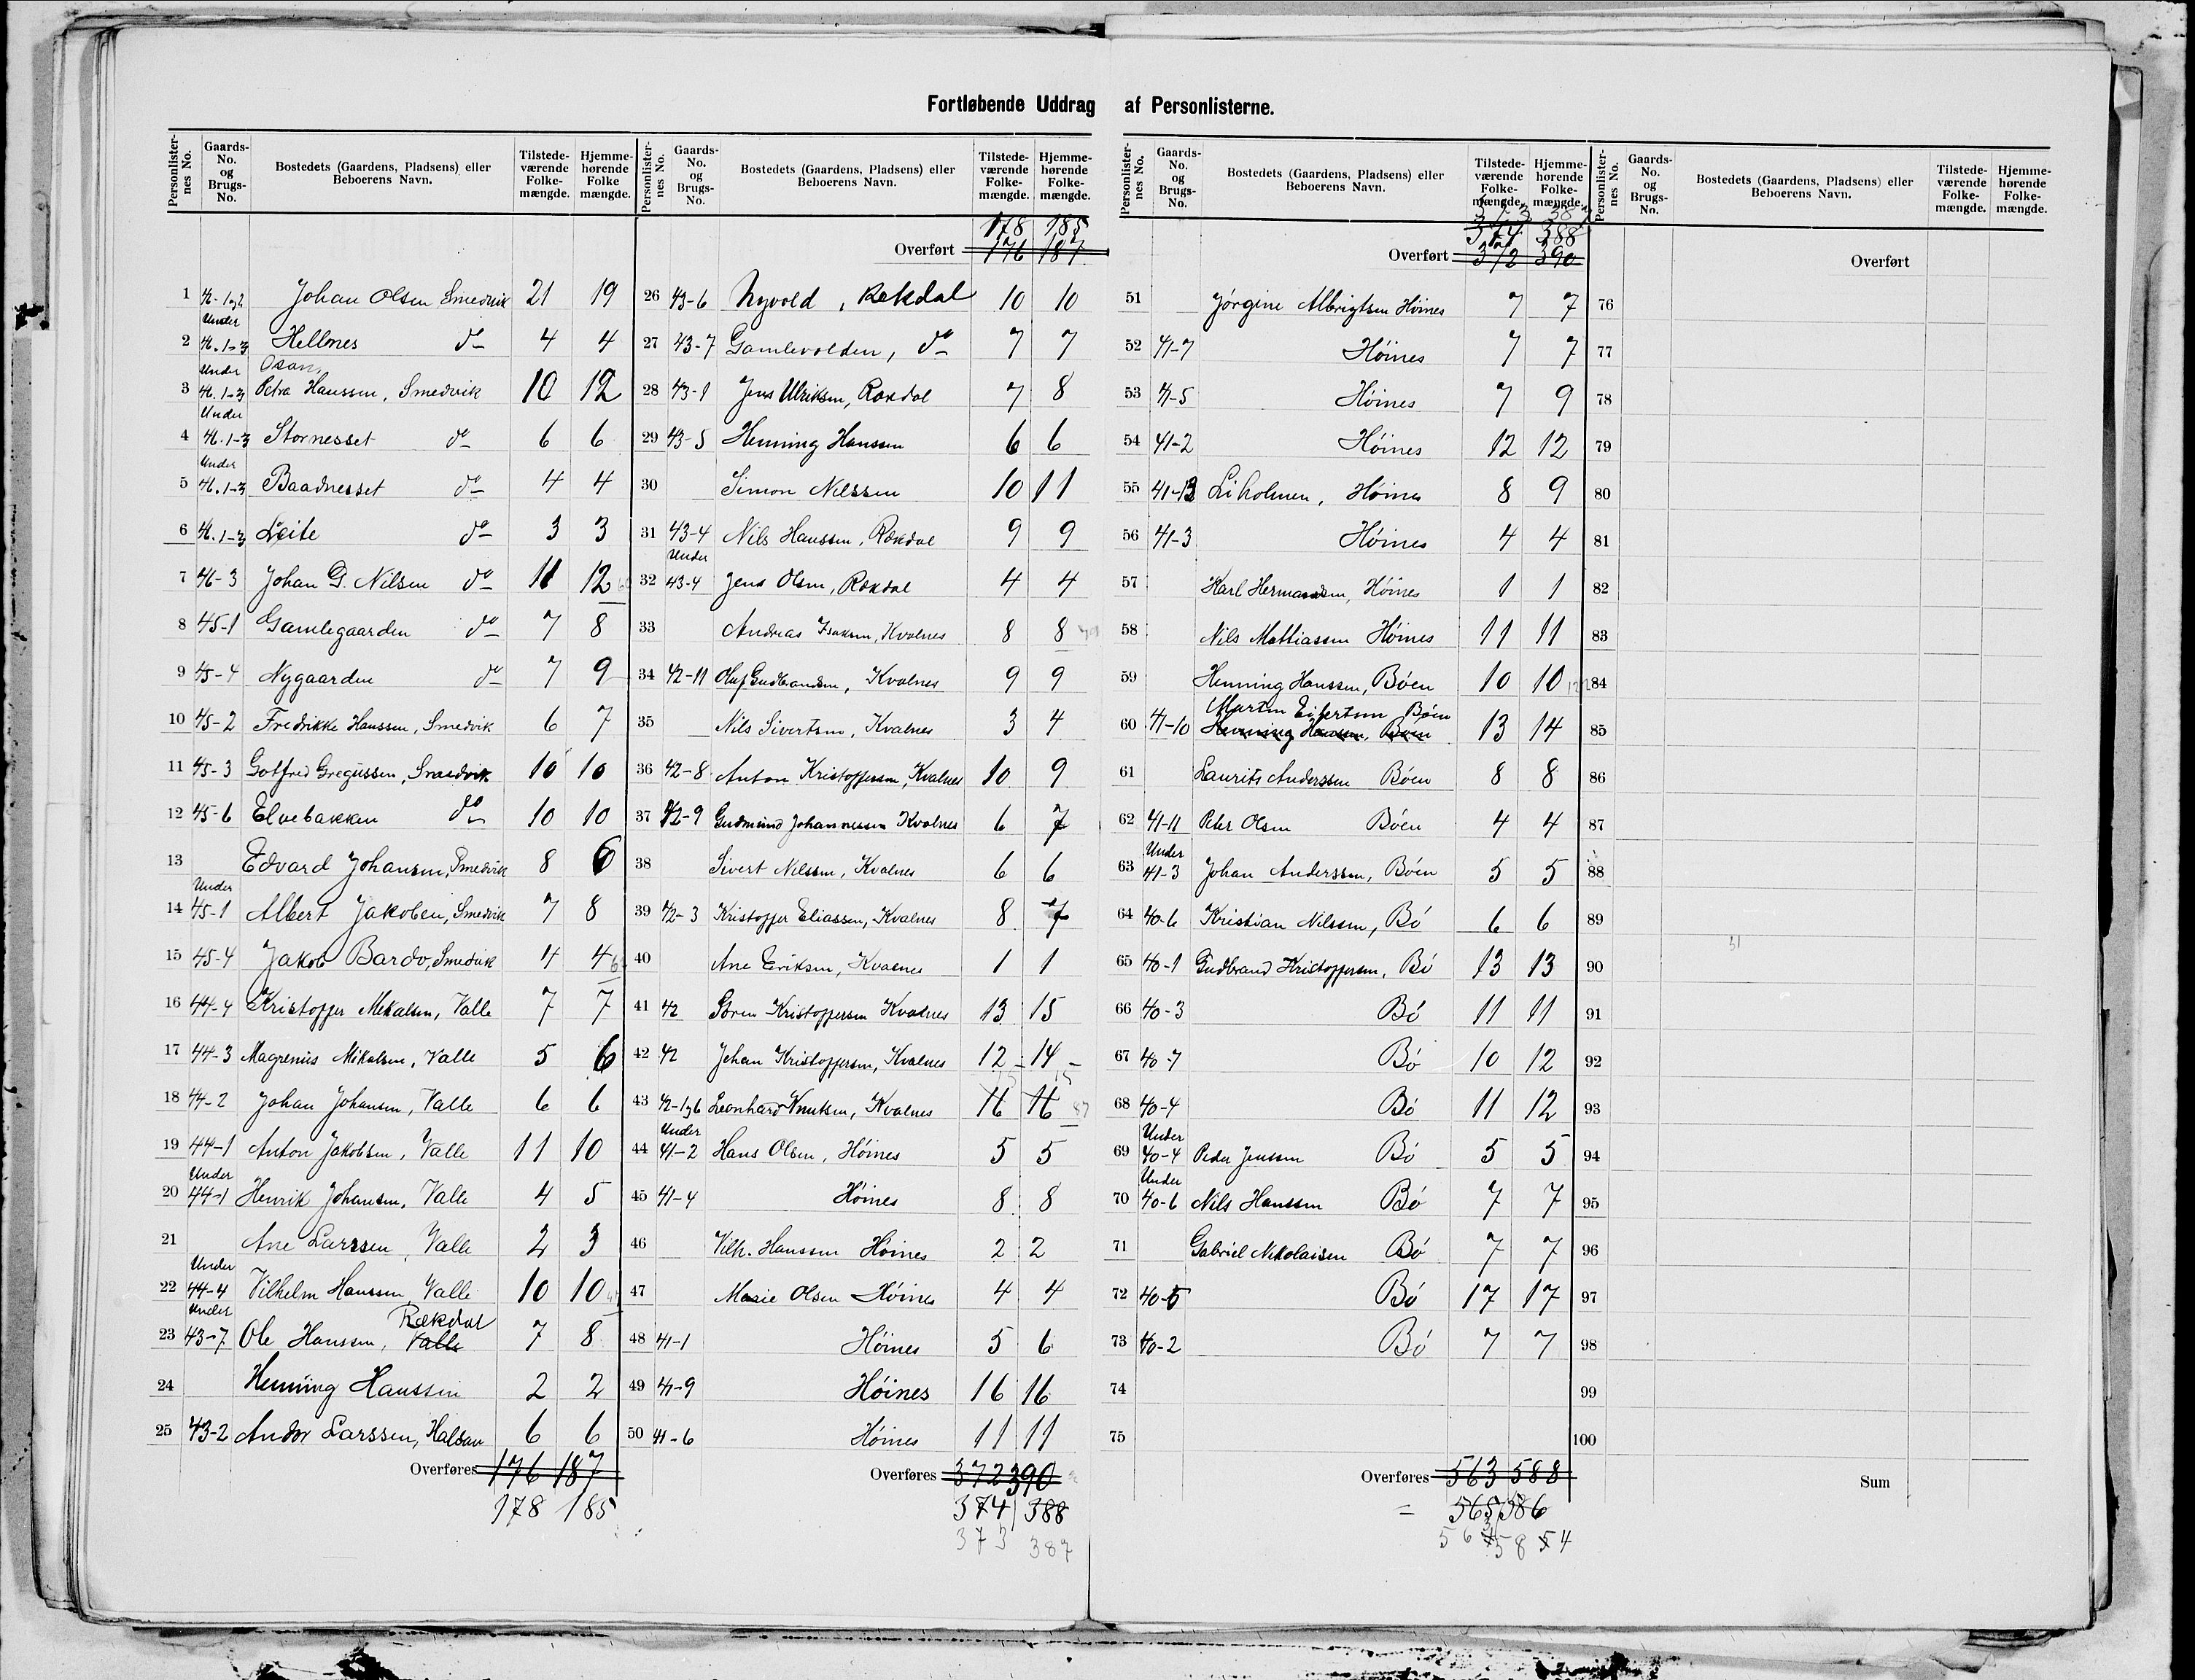 Fortløbende Uddrag af Personlisterne.
Personlister-nes No. Gaards-No. og Brugs-No. Bostedets (Gaardens, Pladsens) eller Beboerens Navn. Tilstede-værende Folke-mængde. Hjemme-hørende Folke mængde.
1 46-1og2 Johan Olsen Smedvik 21 19
2 Under 46.1-3 Hellnes do 4 4
3 Under 46.1-3 Osan, Petra Hanssen, Smedvik 10 12
4 Under 46.1-3 Stornesset do 6 6
5 Under 46.1-3 Baadnesset do 4 4
6 46.1-3 Leite do 3 3
7 46-3 Johan G. Nilsen do 11 12
8 45-1 Gamlegaarden do 7 8
9 45-4 Nygaarden do 7 9
10 45-2 Fredrikke Hanssen, Smedvik 6 7
11 45-3 Gotfred Gregussen, Smedvik 10 10
12 45-6 Elvebakken do 10 10
13 Edvard Johansen, Smedvik 8 6
14 Under 45-1 Albert Jakobsen, Smedvik 7 8
15 45-4 Jakob Bardo, Smedvik 4 4
16 44-4 Kristoffer Mekalsen, Valle 7 7
17 44-3 Magrenius Mikalsen, Valle 5 6
18 44-2 Johan Johansen, Valle 6 6
19 44-1 Anton Jakobsen, Valle 11 10
20 Under 44-1 Henrik Johansen, Valle 4 5
21 Ane Larssen, Valle 2 3
22 Under 44-4 Vilhelm Hanssen, Valle 10 10
23 Under 43-7 Ole Hanssen, Valle Rækdal 7 8
24 Henning Hanssen 2 2
25 43-2 Andor Larssen, Halsan 6 6
Overføres 176 187
178 185
Personlister-nes No. Gaards-No. og Brugs-No. Bostedets (Gaardens, Pladsens) eller Beboerens Navn. Tilstede-værende Folke-mængde. Hjemme-hørende Folke-mængde.
178 185
Overført 176 187
26 43-6 Nyvold, Rækdal 10 10
27 43-7 Gamlevolden, do 7 7
28 43-1 Jens Ulriksen, Rækdal 7 8
29 43-5 Henning Hanssen 6 6
30 Simon Nilssen 10 11
31 43-4 Nils Hanssen, Rækdal 9 9
32 Under 43-4 Jens Olsen, Rækdal 4 4
33 Andreas Isaksen, Kvalnes 8 8
34 42-11 Oluf Gudbrandsen, Kvalnes 9 9
35 Nils Sivertsen, Kvalnes 3 4
36 42-8 Anton Kristoffersen, Kvalnes 10 9
37 42-9 Gudmund Johannessen Kvalnes 6 7
38 Sivert Nilssen, Kvalnes 6 6
39 42-3 Kristoffer Eliassen, Kvalnes 8 7
40 Ane Eriksen, Kvalnes 1 1
41 42 Søren Kristoffersen Kvalnes 13 15
42 42 Johan Kristoffersen, Kvalnes 12 14
43 42-1og6 Leonhard Knutsen, Kvalnes 16 16
15 15
44 Under 41-2 Hans Olsen, Høines 5 5
45 41-4 Høines 8 8
46 Vilh. Hanssen Høines 2 2
47 Marie Olsen Høines 4 4
48 41-1 Høines 5 6
49 41-9 Høines 16 16
50 41-6 Høines 11 11
Overføres 372 390
374 388
373 387
Personlister-nes No. Gaards-No. og Brugs-No. Bostedets (Gaardens, Pladsens) eller Beboerens Navn. Tilstede-værende Folke-mængde. Hjemme-hørende Folke-mængde.
374 388
Overført 372 390
51 Jørgine Albrigtsen Høines 7 7
52 41-7 Høines 7 7
53 41-5 Høines 7 9
54 41-2 Høines 12 12
55 41-12 Liholmen, Høines 8 9
56 41-3 Høines 4 4
57 Karl Hermansen, Høines 1 1
58 Nils Mattiassen Høines 11 11
59 Henning Hanssen, Bøen 10 10
60 41-10 Martin Eilertsen Bøen Henning Hanssen, Bøen 13 14
61 Laurits Anderssen Bøen 8 8
62 41-11 Peter Olsen Bøen 4 4
63 Under 41-3 Johan Anderssen, Bøen 5 5
64 40-6 Kristian Nilssen, Bø 6 6
65 40-1 Gudbrand Kristoffersen, Bø 13 13
66 40-3 Bø 11 11
67 40-7 Bø 10 12
68 40-4 Bø 11 12
69 Under 40-4 Peder Jenssen Bø 5 5
70 Under 40-6 Nils Hanssen Bø 7 7
71 Gabriel Nikolaisen Bø 7 7
72 40-5 Bø 17 17
73 40-2 Bø 7 7
74
75
Overføres 563 588
= 565 586
Personlister-nes No. Gaards-No. og Brugs-No. Bostedets (Gaardens, Pladsens) eller Beboerens Navn. Tilstede-værende Folke-mængde. Hjemme-hørende Folke-mængde.
Overført
76
77
78
79
80
81
82
83
84
85
86
87
88
89
90
91
92
93
94
95
96
97
98
99
100
Sum